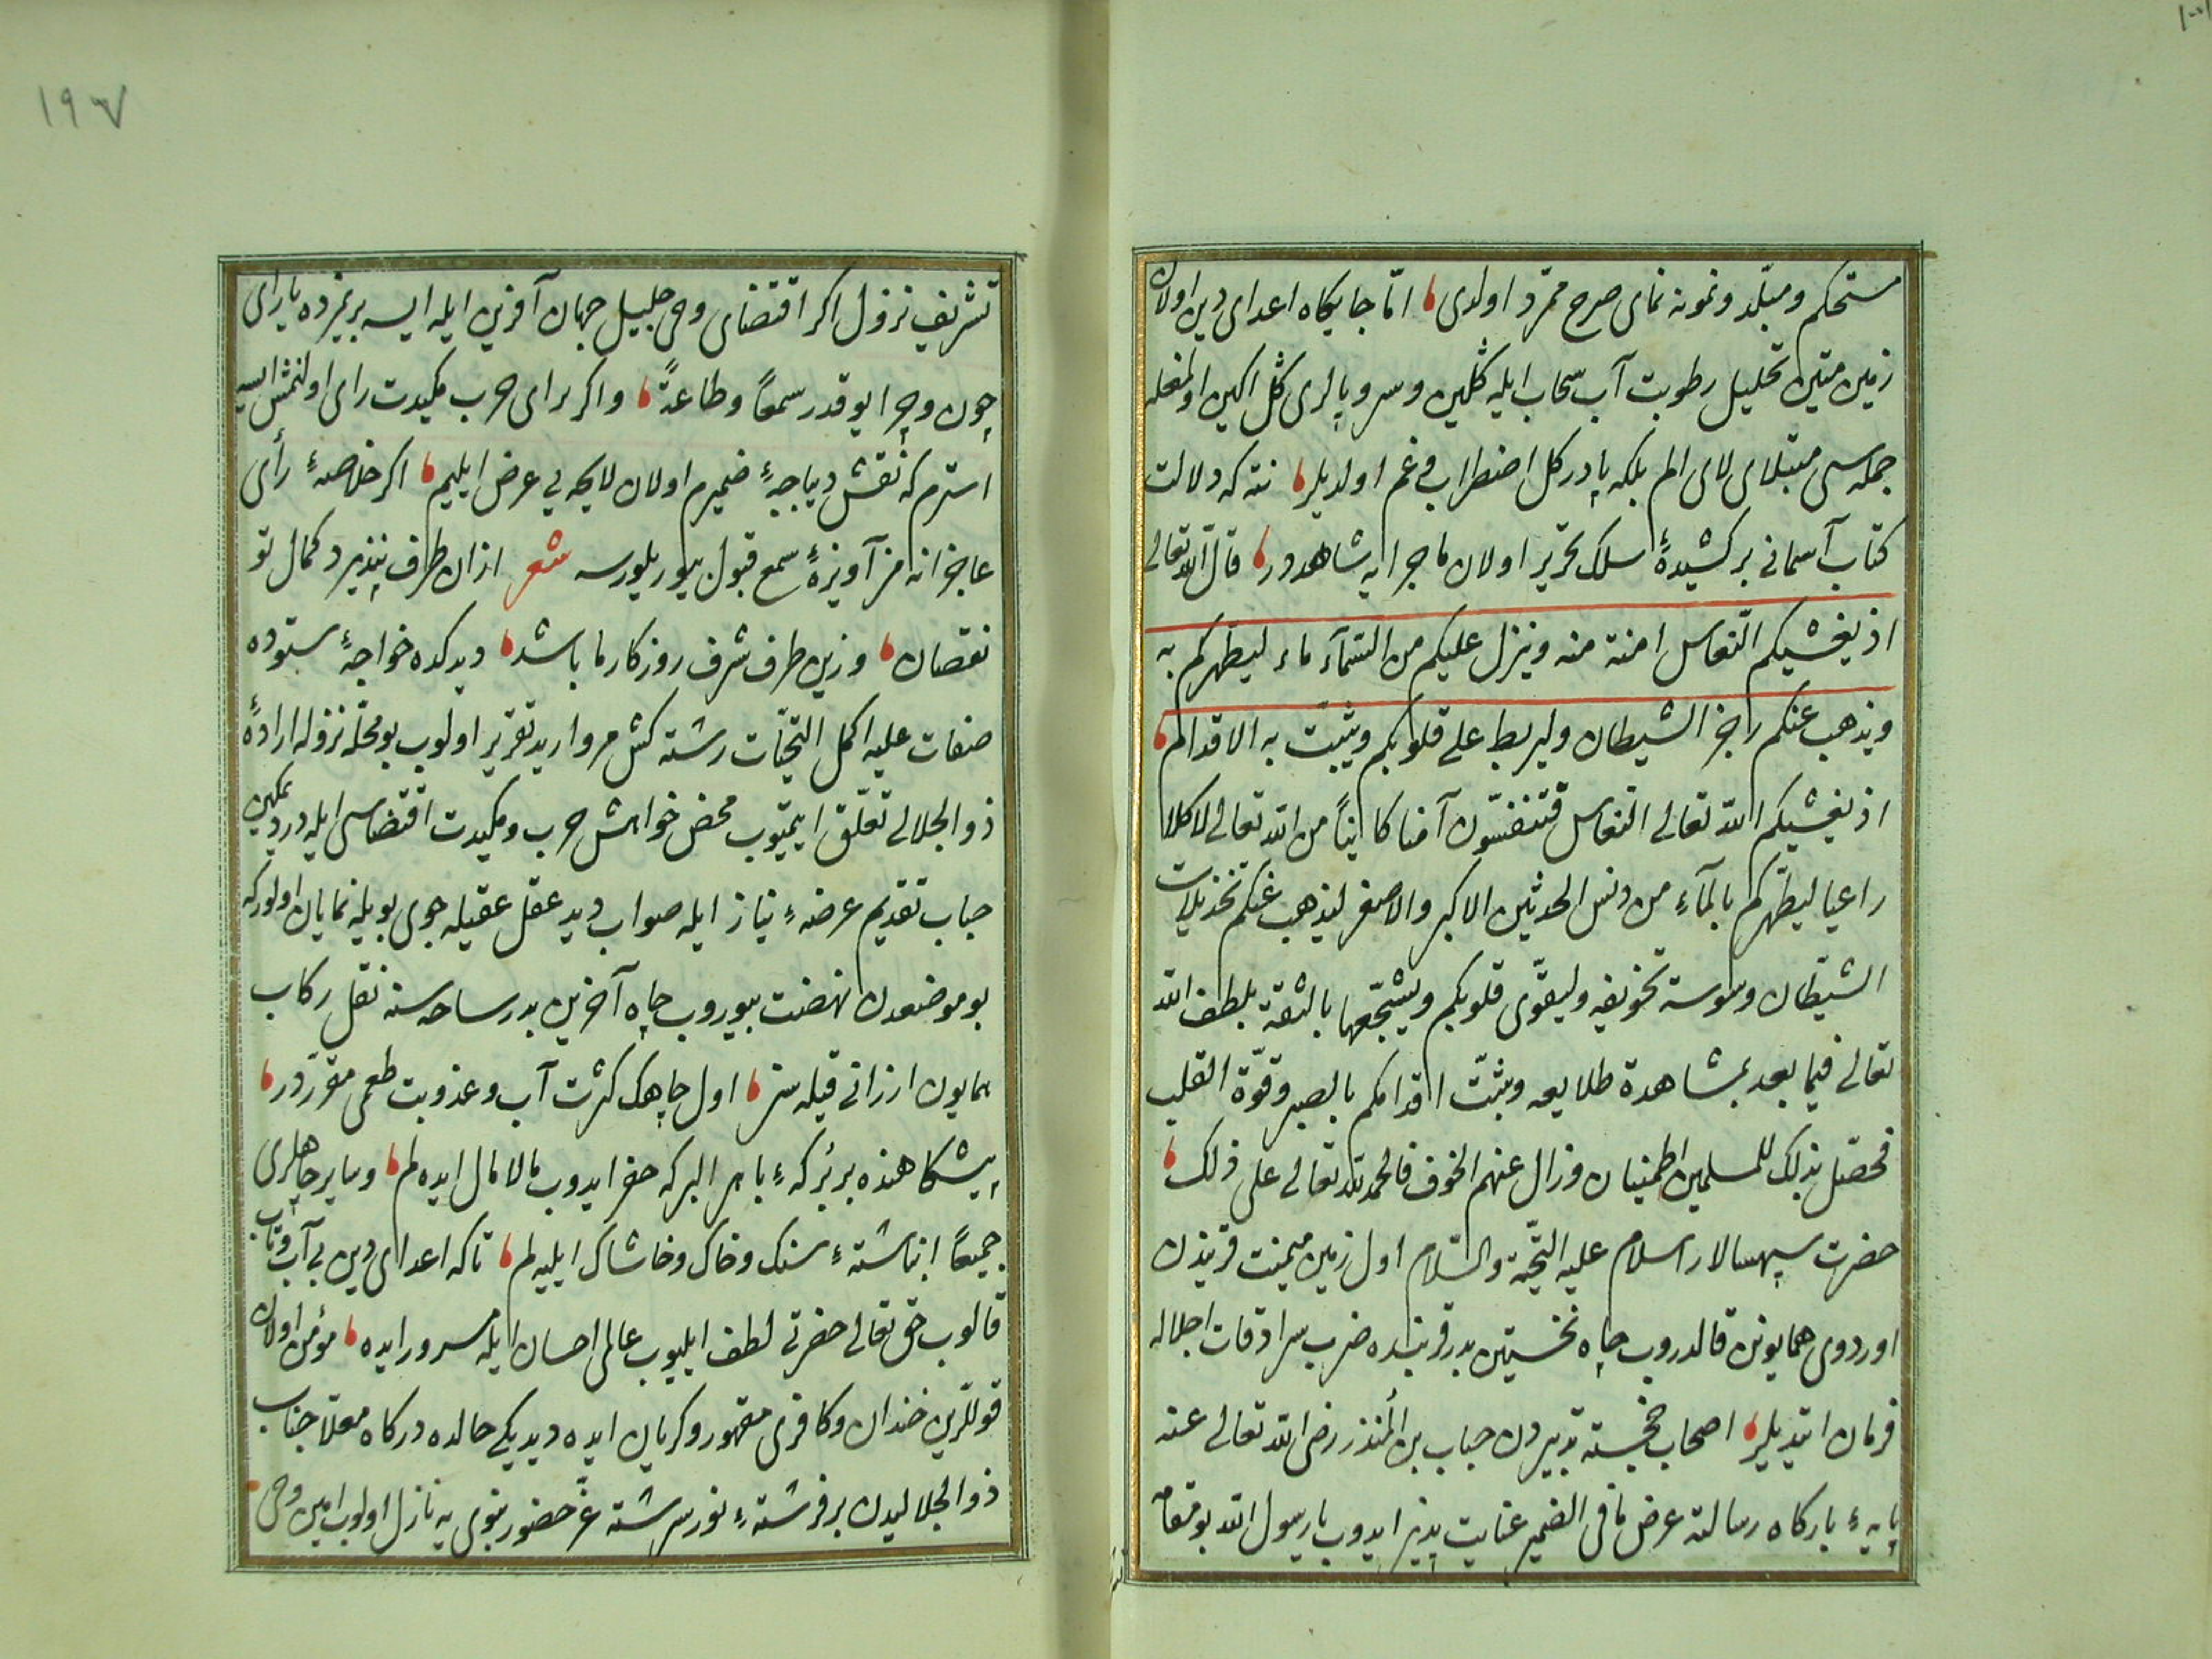 مستحكم و مبلّد و نمونه نمای صرح ممرّد اولدی امّا جایكاه اعدای دین اولان
زمین متین تحلیل رطوبت آب سحاب ایله كلین و سر و پالری كل اكین اولمغله
جمله سی مبتلای لای الم بلكه پا در كل اضطراب و غم اولدیلر نته كه دلالت
كتاب آسمانی بركشیدهٔ سلك تحریر اولان ماجرایه شاهددر قال الله تعالی
اذ یغشیكم النّعاس امنة منه و ینزل علیكم من السّمآء ماء لیطهّركم به
و یذهب عنكم رجز الشیطان و لیربط علی قلوبكم و یثبّت به الاقدام
اذ یغشیكم الله تعالی النعاس فتنفسون آمنا كاینًا من الله تعالی لا كلالا
راعیا لیطهّركم بالمآء من دنس الحدثین الاكبر و الاصغر لیذهب عنكم تخذیلات
الشیطان و وسوسة تخویفه و لیقوّی قلوبكم و یشجّعها بالثقة بلطف الله
تعالی فیما بعد بمشاهدة طلایعه و یثبّت اقدامكم بالصبر و قوّة القلب
فحصل بذلك للمسلمین اطمینان و زال عنهم الخوف فالحمد لله تعالی علی ذلك
حضرت سپهسالار اسلام علیه التحیّة و السّلام اول زمین میمنت قریندن
اوردوی همایونن قالدروب چاه نخستین بدر قربنده ضرب سرادقات اجلاله
فرمان ایتدیلر اصحاب خجسته تدبیردن حباب بن المُنذر رضی الله تعالی عنه
پایهٔ باركاه رسالته عرض ما فی الضمیر عنایت پذیر ایدوب یا رسول الله بو مقام
١٩٧
تشریف نزول اكر اقتضای وحی جلیل جهان آفرین ایله ایسه بریمزده یارای
چون و چرا یوقدر سمعًا و طاعةً و اكر برای حرب مكیدت رای اولنمش ایسه
استرم كه نقش دیباجهٔ ضمیرم اولان لایحه یی عرض ایلیم اكر خلاصهٔ رأی
عاجزانه مز آویزهٔ سمع قبول بیوریلورسه شعر ازان طرف نپذیرد كمال تو
نقصان وزین طرف شرف روزكار ما باشد دیدكده خواجهٔ ستوده
صفات علیه اكمل التحیّات رشته كش مروارید تقریر اولوب بو محلّه نزوله ارادهٔ
ذو الجلالی تعلّق ایتمیوب محض خواهش حرب و مكیدت اقتضاسی ایله در دیمكین
حباب تقدیم عرضهٔ نیاز ایله صواب دید عقل عقیله جوی بویله نمایان اولور كه
بو موضعدن نهضت بیوروب چاه آخرین بدر ساحه سنه نقل ركاب
همایون ارزانی قیله سز اول چاهك كثرت آب و عذوبت طعمی مقرّردر
پیشكاهنده بر بُركهٔ باهر البركه حفر ایدوب مالامال ایده لم و سایر چاهلری
جمیعًا انباشتهٔ سنك و خاك و خاشاك ایلیه لم تا كه اعدای دین بی آب و تاب
قالوب حق تعالی حضرتی لطف ایلیوب عالمی احسان ایله مسرور ایده مؤمن اولان
قوللرین خندان و كافری مقهور و كریان ایده دیدیكی حالده دركاه معلّا جناب
ذو الجلالیدن بر فرشتهٔ نور سرشته عزّ حضور نبوی یه نازل اولوب امین وحی